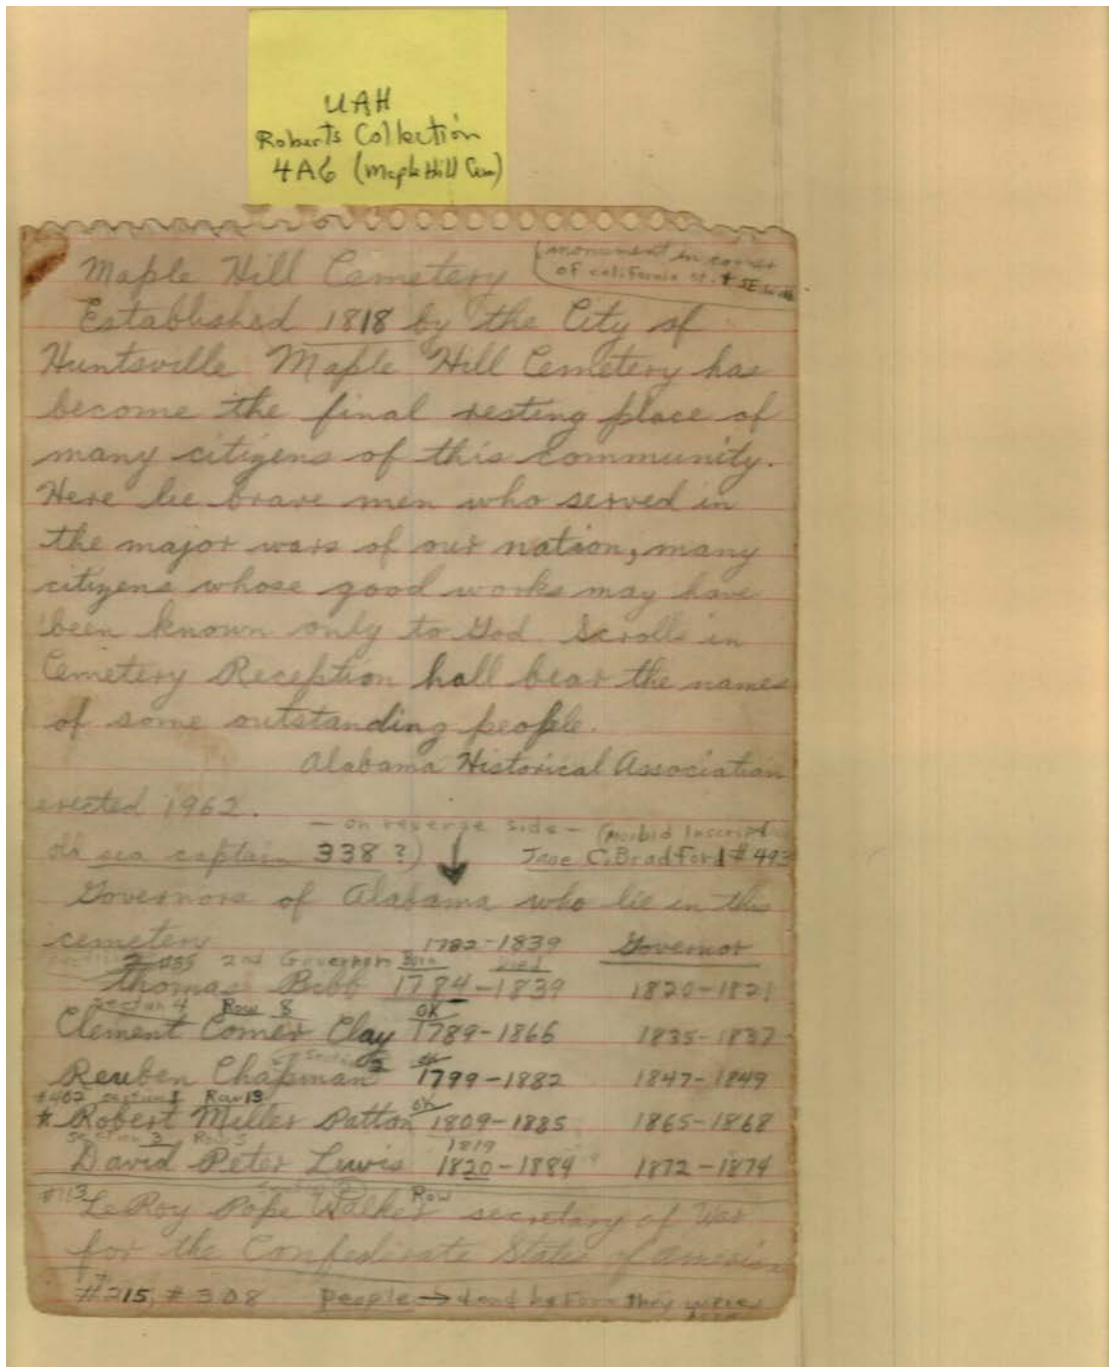 UAH
Roberts Collection
4A6 (Maple Hill Cem)
(monument in corner
of california st. &
Maple Hill Cemetery
Established 1818 by the City of
Huntsville Maple Hill Cemetery has
become the final resting place of
many citizens of this community.
Here lie brave men who served in
the major wars of our nation, many
citizens whose good works may have
been known only to God. Scrolls in
Cemetery Reception hall bear the names
of some outstanding people.
Alabama Historical Association
erected 1962.
— on reverse side — (Morbid Inscription
old sea captain 338?) Jane C. Bradford #493
Governors of Alabama who lie in this
cemetery 1782-1839 Governor
2nd Governor Born Died
Thomas Bibb 1784-1839 1820-1821
section 4 Row 8 OK
Clement Comer Clay 1789-1866 1835-1837
Section 2 OK
Reuben Chapman 1799-1882 1847-1849
#402 section 1 Row 13 OK
* Robert Miller Patton 1809-1885 1865-1868
section 3 Row 5 1819
David Peter Lewis 1820-1884 1872-1874
#113 Row
LeRoy Pope Walker secretary of War
for the Confederate States of America
#215, #308 people → dead before they were
born